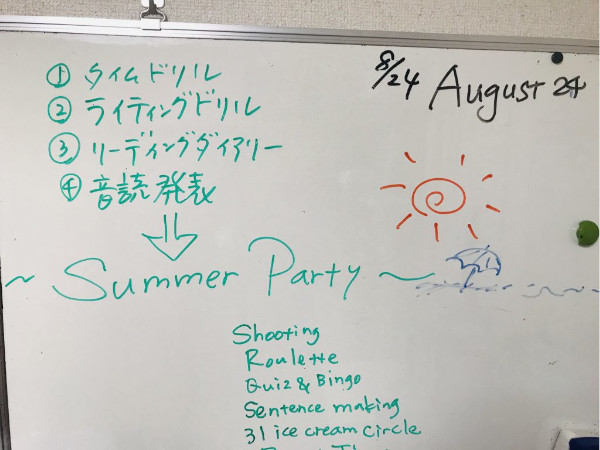 ① タイムドリル
② ライティングドリル
③ リーディングダイアリー
④ 音読発表
8/24 August 24
~ Summer Party ~
Shooting
Roulette
Quiz & Bingo
Sentence making
31 ice cream circle